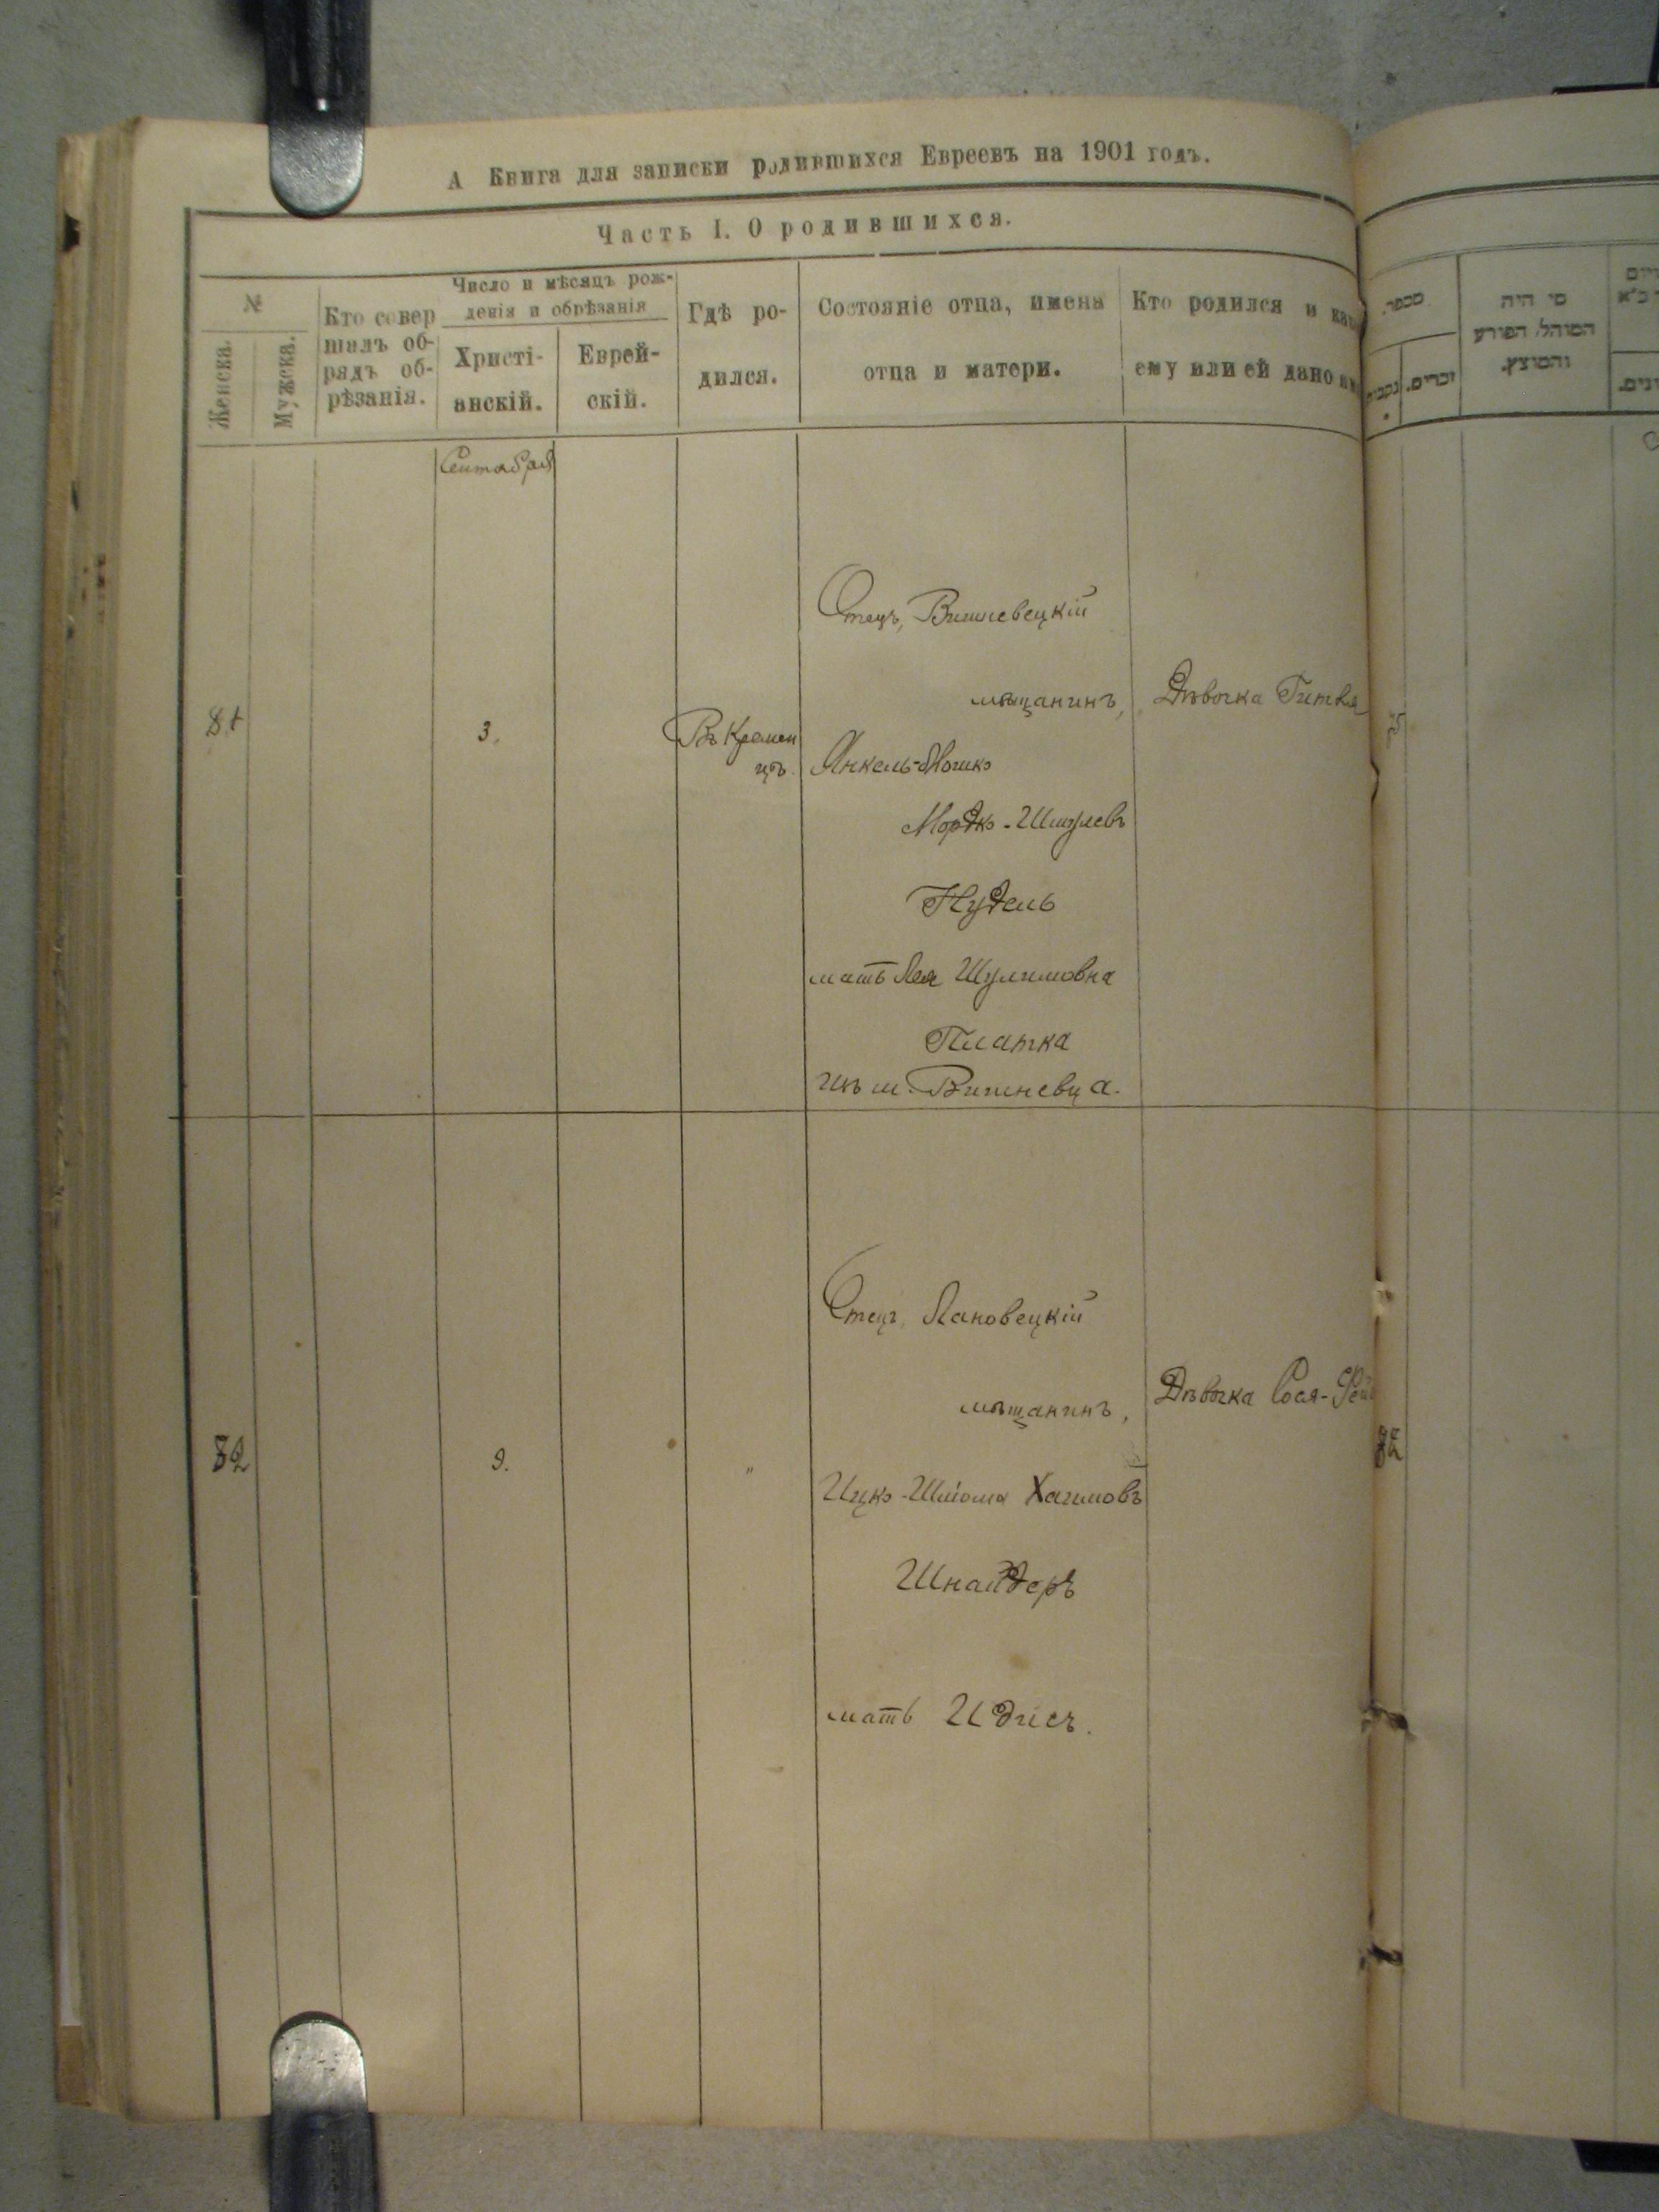 А Книга для записки родившихся Евреевъ на 1901 годъ.
Часть I. О родившихся.
№
Женска.
Мужска.
Кто совер
шалъ об-
рядъ об-
рѣзанія.
Число и мѣсяцъ рож-
денія и обрѣзанія
Христі-
анскій.
Еврей-
скій.
Гдѣ ро-
дился.
Состояніе отца, имена
отца и матери.
Кто родился и
ему или ей дано
מספר
נקבות
זכרים.
מי היה
המוהל, הפורע
והמוצץ.
Сентября
81
3.
Въ Кремен
цѣ.
Отецъ, Вишневецкій
мѣщанинъ,
Янкель-Мошко
Мордко-Шмулевъ
Нудель
мать Лея Шулимовна
Платка
изъ м. Вишневца.
Дѣвочка Гитля
82
9.
"
Отецъ, Лановецкій
мѣщанинъ,
Ицко-Шлома Хаимовъ
Шнайдеръ
мать Идисъ.
Дѣвочка Сося-
82